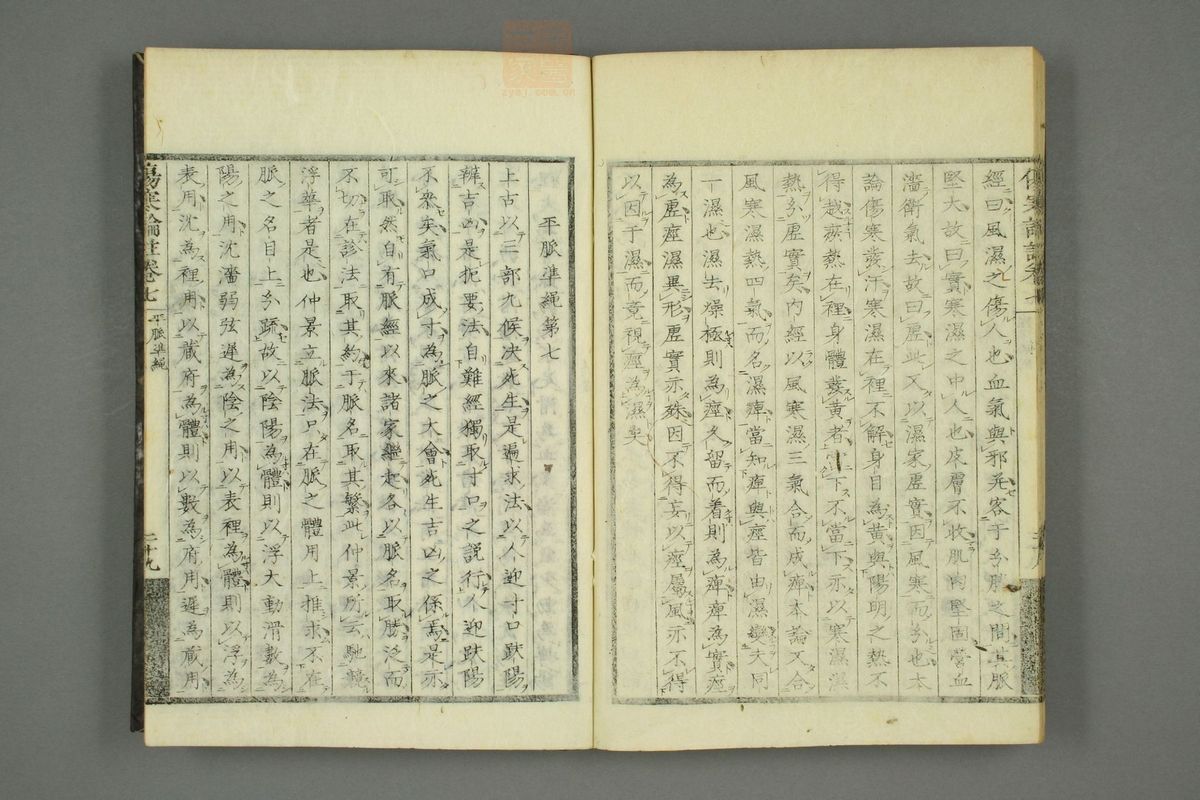 經曰風濕之傷人也血氣與邪并客于分腠之間其脈
堅大故曰實寒濕之中人也皮膚不收肌肉堅固營血
濇衛氣去故曰虛此又以濕家虛實因風寒而分也本
論傷寒發汗寒濕在裡不解身目為黃與陽明之熱不
得越瘀熱在裡身體發黃者當下不當下亦以寒濕濕
熱分虛實矣內經以風寒濕三氣合而成痺本論又合
風寒濕熱四氣而名濕痺當知痺與痙皆由濕變夫同
一濕也濕去燥極則為痙久留而着則為痺痺為實痙
為虛痙濕異形虛實亦殊因不得妄以痙屬風亦不得
以因于濕而竟視痙為濕矣
平脈準繩第七
上古以三部九候决死生是遍求法以人迎寸口趺陽
辨吉凶是扼要法自難經獨取寸口之說行人迎趺陽
不衆矣氣口成寸為脈之大會死生吉凶之係焉是亦
可取然自有脈經以來諸家繼起各以脈名取勝泛而
不切在診法取其約于脈名取其繁此仲景所云馳競
浮華者是也仲景立脈法只在脈之體用上推求不在
脈之名目上分疏故以陰陽為體則以浮大動滑數為
陽之用沈濇弱弦遲為陰之用以表裡為體則以浮為
表用沈為裡用以藏府為體則以數為府用遲為藏用
傷寒論註卷七
平脈準繩
二十九
zysj.com.cn